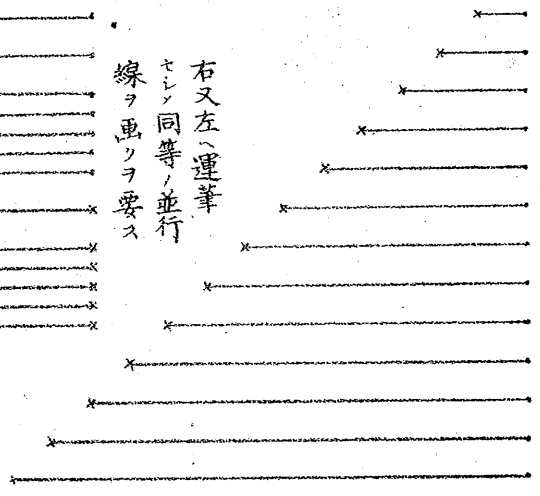 右又左ヘ運筆
セシメ同等ノ並行
線ヲ画クヲ要ス